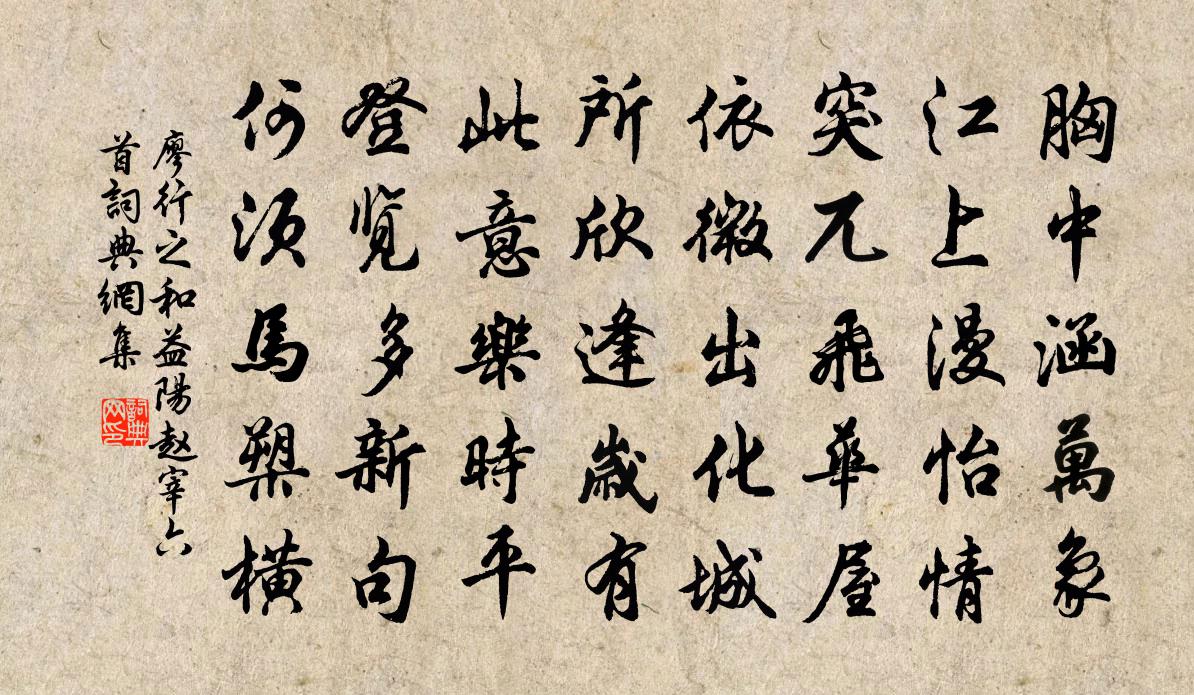 胸中涵萬象
江上漫怡情
突兀飛華屋
依微出化城
所欣逢歲有
此意樂時平
登覽多新句
何須馬槊橫
廖行之和益陽赵宰六
首詞典網集
詞典
网印